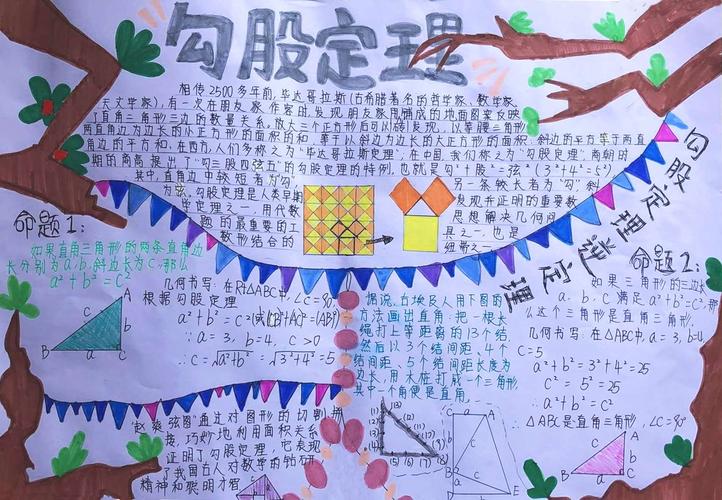 勾股定理
相传2500多年前,毕达哥拉斯(古希腊著名的哲学家、数学家、
天文学家),有一次在朋友家作客时,发现朋友家用砖铺成的地面图案反映
了直角三角形三边的数量关系,
两直角边为边长的小正方形的面积的和,等于以斜边为边长的大正方形的面积.
斜边的平方等于两直
角边的平方和,在西方,人们称之为“毕达哥拉斯定理”,在中国,我们称之为“勾股定理”,商朝时
期的商高提出了“勾三股四弦五”的勾股定理的特例,也就是勾²+股²=弦²(3²+4²=5²)
其中,直角边中较短者为勾,
另一条较长者为“勾”,斜
为弦,勾股定理是人类早期
发现并证明的重要数
学定理之一,用代数
思想解决几何问
题的最重要的工
具之一,也是
数形结合的
纽带之一
勾股定理逆定理
命题1:
如果直角三角形的两条直角边
长分别为a,b,斜边长为c,那么
a²+b²=c²
A
B
C
a
b
c
几何书写:在Rt△ABC中,∠C=90°
根据勾股定理
a²+b²=c²
∵a=3, b=4, c>0
∴c=√a²+b²=√3²+4²=5
据说,古埃及人用下图的
方法画出直角:把一根长
绳打上等距离的13个结,
然后以3个结间距、4个
结间距、5个结间距长度为
边长,用木桩钉成一个三角形,
其中一个角便是直角.
命题2:
如果三角形的三边长
a、b、c满足a²+b²=c²,那
么这个三角形是直角三角形.
几何书写:在△ABC中,a=3, b=4
c=5
a²+b²=3²+4²=25
c²=5²=25
∴a²+b²=c²
∴△ABC是直角三角形,∠C=90°
“赵爽弦图”通过对图形的切割、拼
接,巧妙地利用面积关系
证明了勾股定理,它表现
了我国古人对数学的钻研
精神和聪明才智